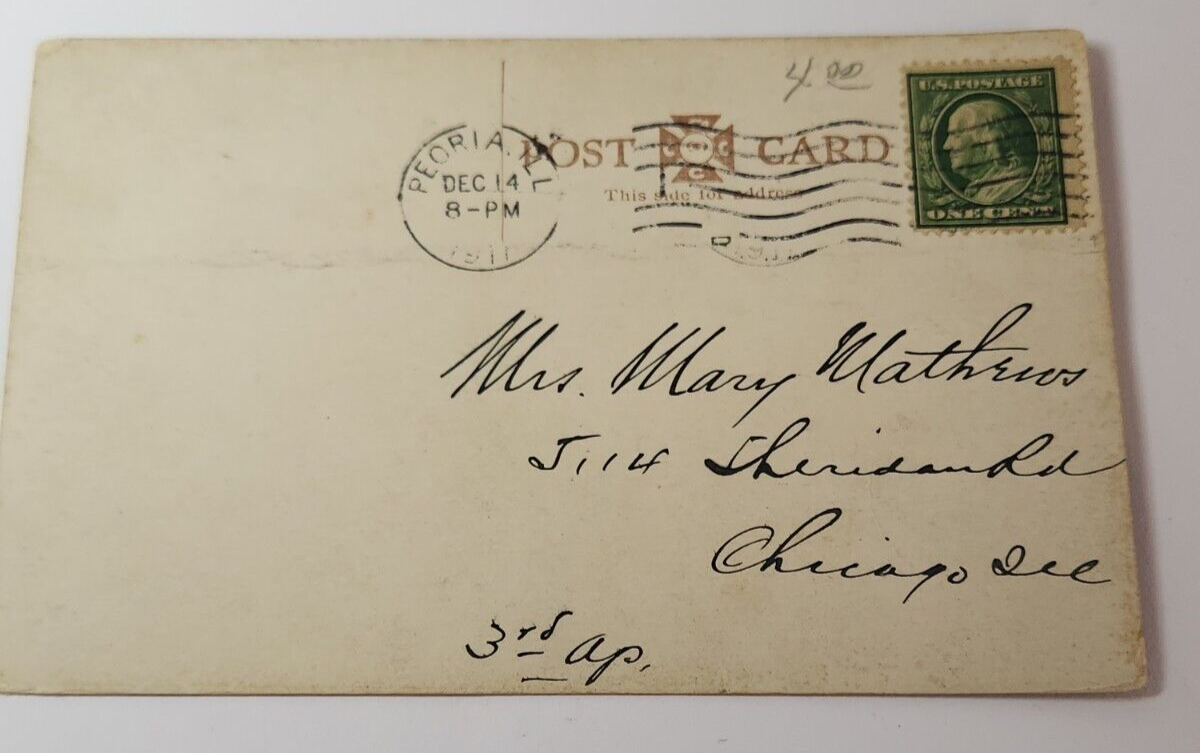 4 00
U.S. POSTAGE
ONE CENT
PEORIA, ILL
DEC 14
8-PM
1911
POST CARD
This side for address
Mrs. Mary Mathews
5114 Sheridan Rd
Chicago Ill
3rd Ap.